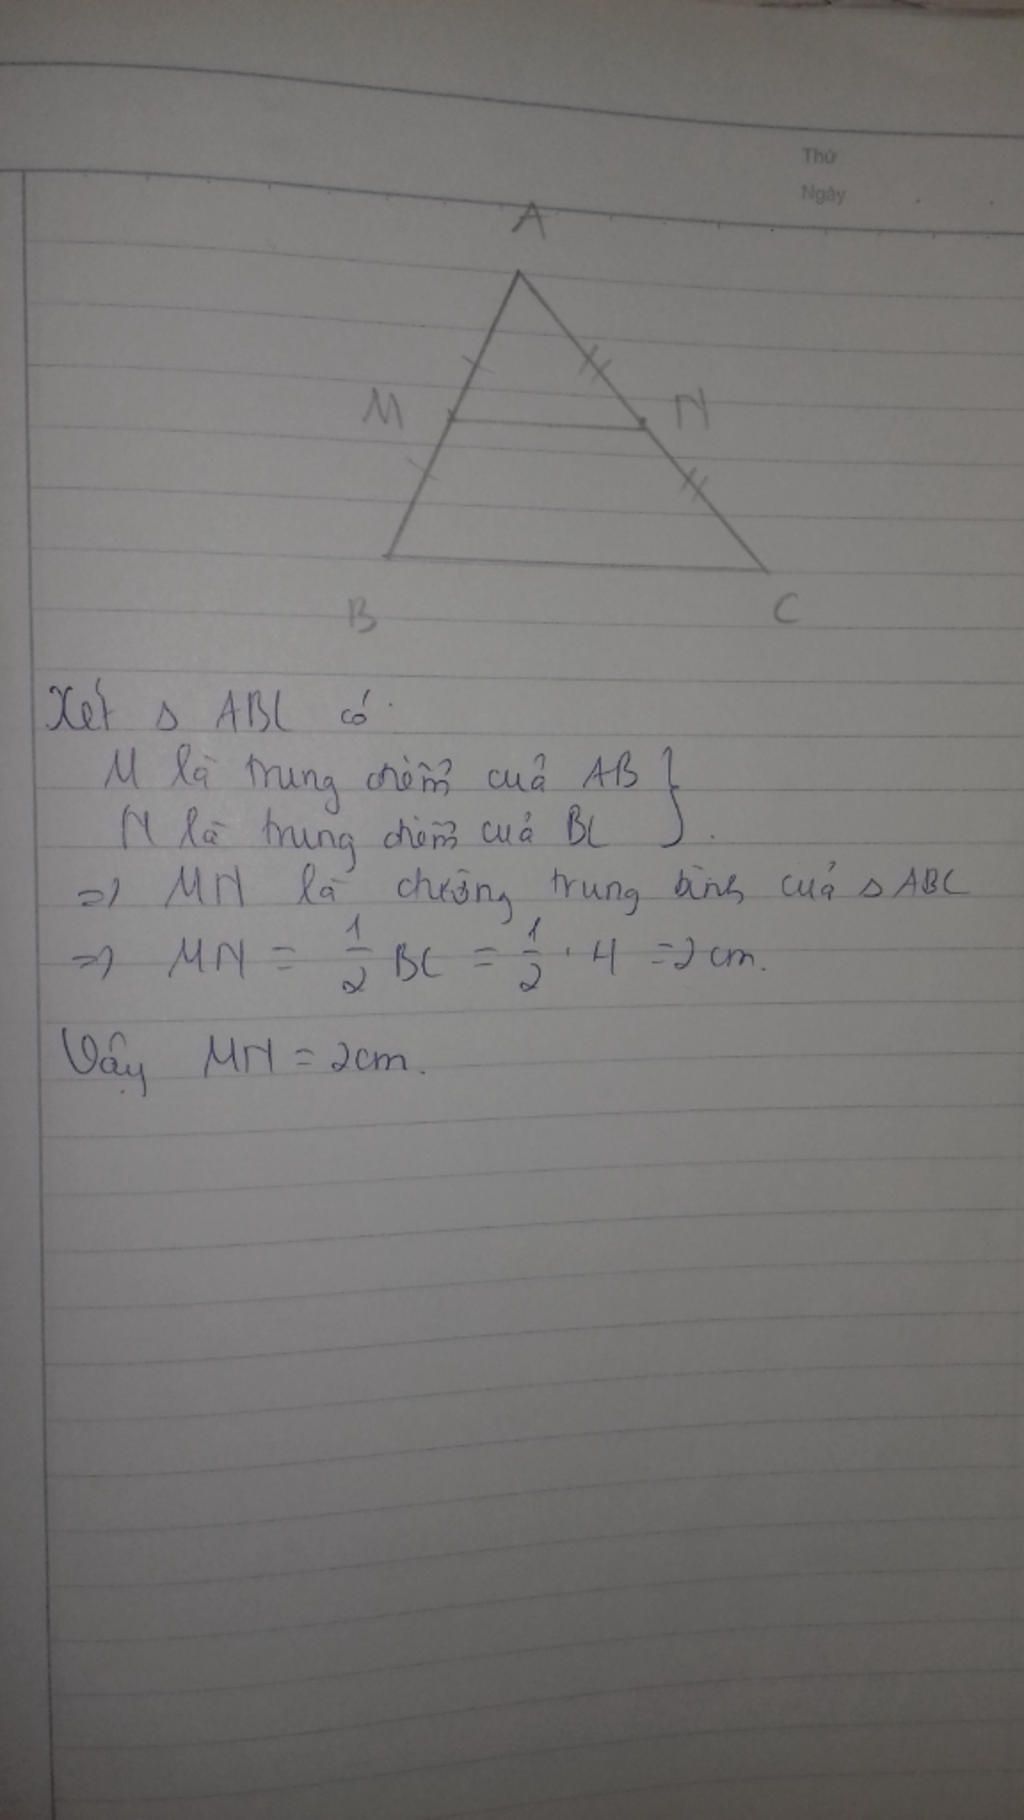 Thứ
Ngày
A
M N
B C
Xét Δ ABC có
M là trung điểm của AB }
N là trung điểm của BC }.
=> MN là đường trung bình của Δ ABC
=> MN = 1/2 BC = 1/2 . 4 = 2 cm.
Vậy MN = 2cm.